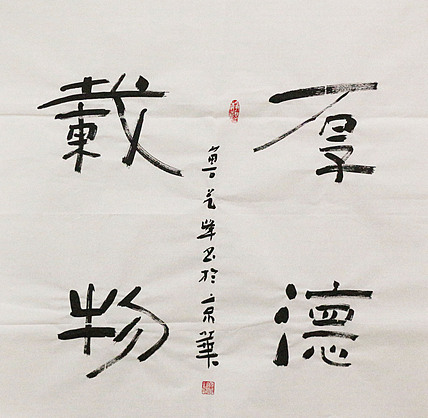 厚德
載物
魯 峰书於京華